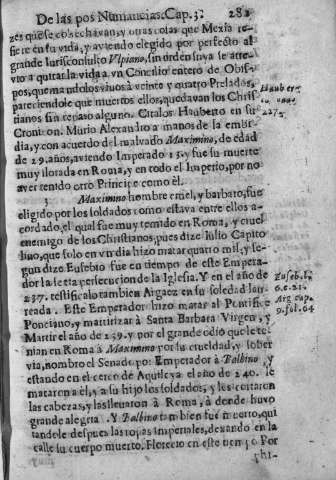 De las pos Numancias. Cap. 3. 282
zes que se cosechavan, y otras cosas que Mexia re-
fiere en su vida, y aviendo elegido por perfecto al
grande Jurisconsulto Vlpiano, sin orden suya se atre-
vio a quitar la vida a vn Concilio entero de Obis-
pos, quemandolos vivos a veinte y quatro Prelados,
pareciendole que muertos ellos, quedavan los Chris-
tianos sin reparo alguno. Citalos Hauberto en su
Hauber.
Cronicon. Murio Alexandro a manos de la embi-
227.
dia, y con acuerdo del malvado Maximino, de edad
de 29. años, aviendo Imperado 13. y fue su muerte
muy llorada en Roma, y en todo el Imperio, por no
aver tenido otro Principe como èl.
3 Maximino hombre cruel, y barbaro, fue
eligido por los soldados como estava entre ellos a-
cordado, el qual fue muy temido en Roma, y cruel
enemigo de los Christianos, pues dize Julio Capito
lino, que solo en vn dia hizo matar quatro mil, y se-
gun dize Eusebio fue en tiempo de este Empera-
dor la sexta persecucion de la Iglesia. Y en el año de
Euseb. l.
237. testificalo tambien Argaez en su soledad lau-
6. c. 21.
reada. Este Emperador hizo matar al Pontifice
Arg. cap.
Ponciano, y martirizar à Santa Barbara Virgen, y
9. fol. 64
Martir el año de 239. y por el grande odio que le te-
nian en Roma à Maximino por su crueldad, y sober
via, nombro el Senado por Emperador à Balbino, y
estando en el cerco de Aquileya el año de 240. le
mataron a èl, y a su hijo los soldados, y les cortaron
las cabezas, y las llevaron à Roma, à donde huvo
grande alegria. Y Balbino tambien fue muerto, qui
tandole despues las ropas Imperiales, dexando en la
calle su cuerpo muerto. Florecio en este tiempo Por
phi-